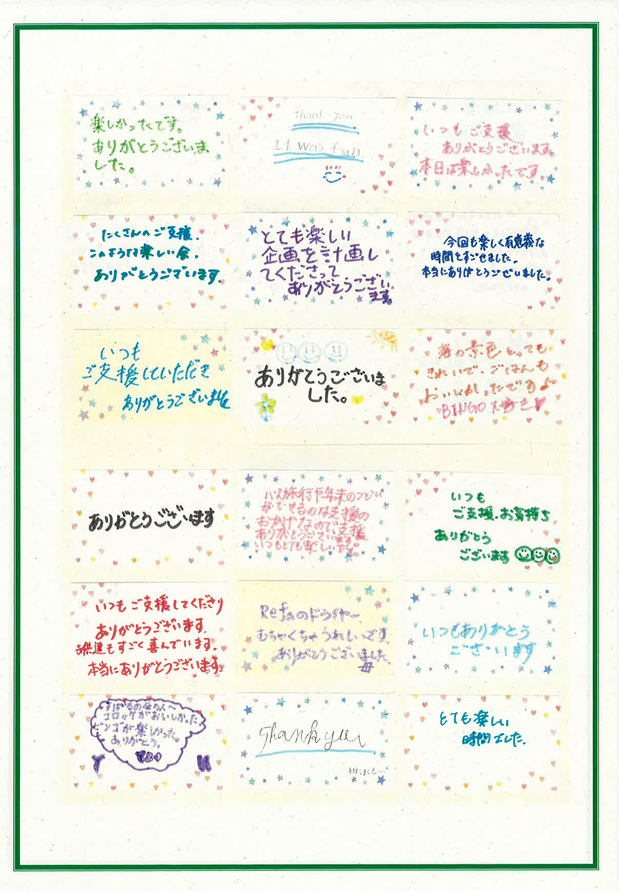 楽しかったです。
ありがとうございま
した。
Thank you
It was fun
いつもご支援
ありがとうございます。
本日は楽しかったです。
たくさんのご支援、
このような楽しい会、
ありがとうございます。
とても楽しい
企画を計画し
てくださって
ありがとうござい
ます。
今回も楽しく有意義な
時間をすごせました。
本当にありがとうございました。
いつも
ご支援していただき
ありがとうございました
ありがとうございま
した。
海の景色とっても
きれいで、ごはんも
おいしかったですよ
BINGO 大好き
ありがとうございます
バス旅行や年末のつどい
ができるのは支援の
おかげなので支援
ありがとうございます。
いつもとても楽しいです。
いつも
ご支援、お気持ち
ありがとう
ございます
いつもご支援してくださり
ありがとうございます。
子供達もすごく喜んでいます。
本当にありがとうございます。
Refaのドライヤー
むちゃくちゃうれしいです
ありがとうございました
母
いつもありがとう
ございます
すばるのみなさんへ
コロッケがおいしかった
ビンゴが楽しかった。
ありがとう。
Thank you
とても楽しい
時間でした。